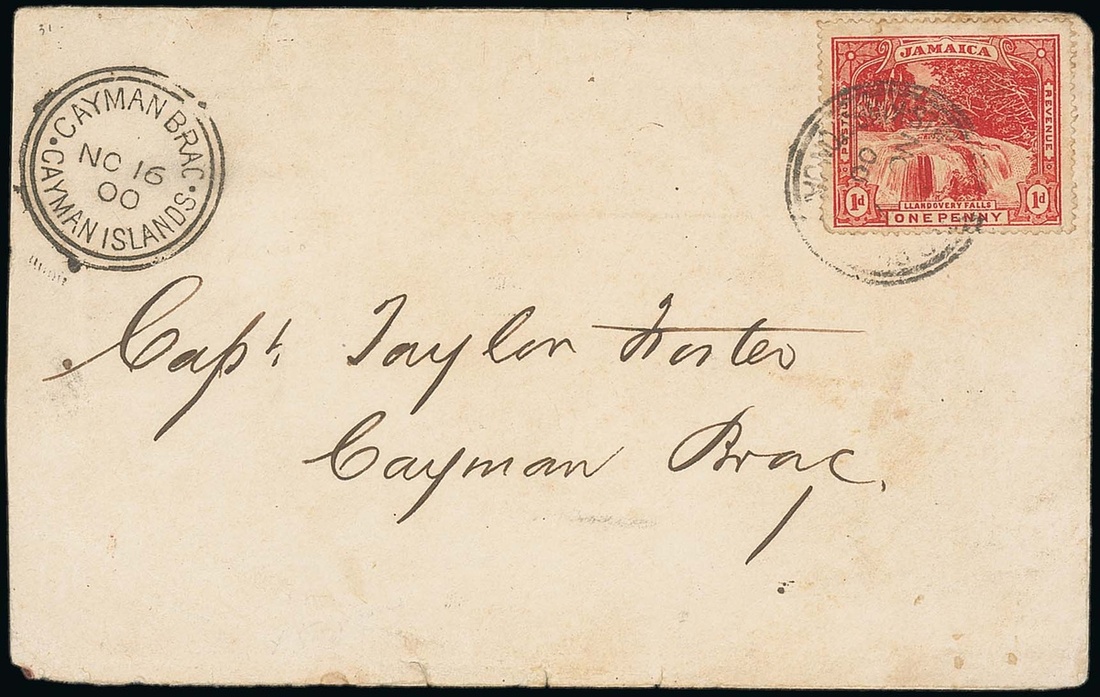 CAYMAN BRAC
NO 16
00
CAYMAN ISLANDS
JAMAICA
POSTAGE
REVENUE
1d
LLANDOVERY FALLS
1d
ONE PENNY
Capt. Taylor Foster
Cayman Brac,